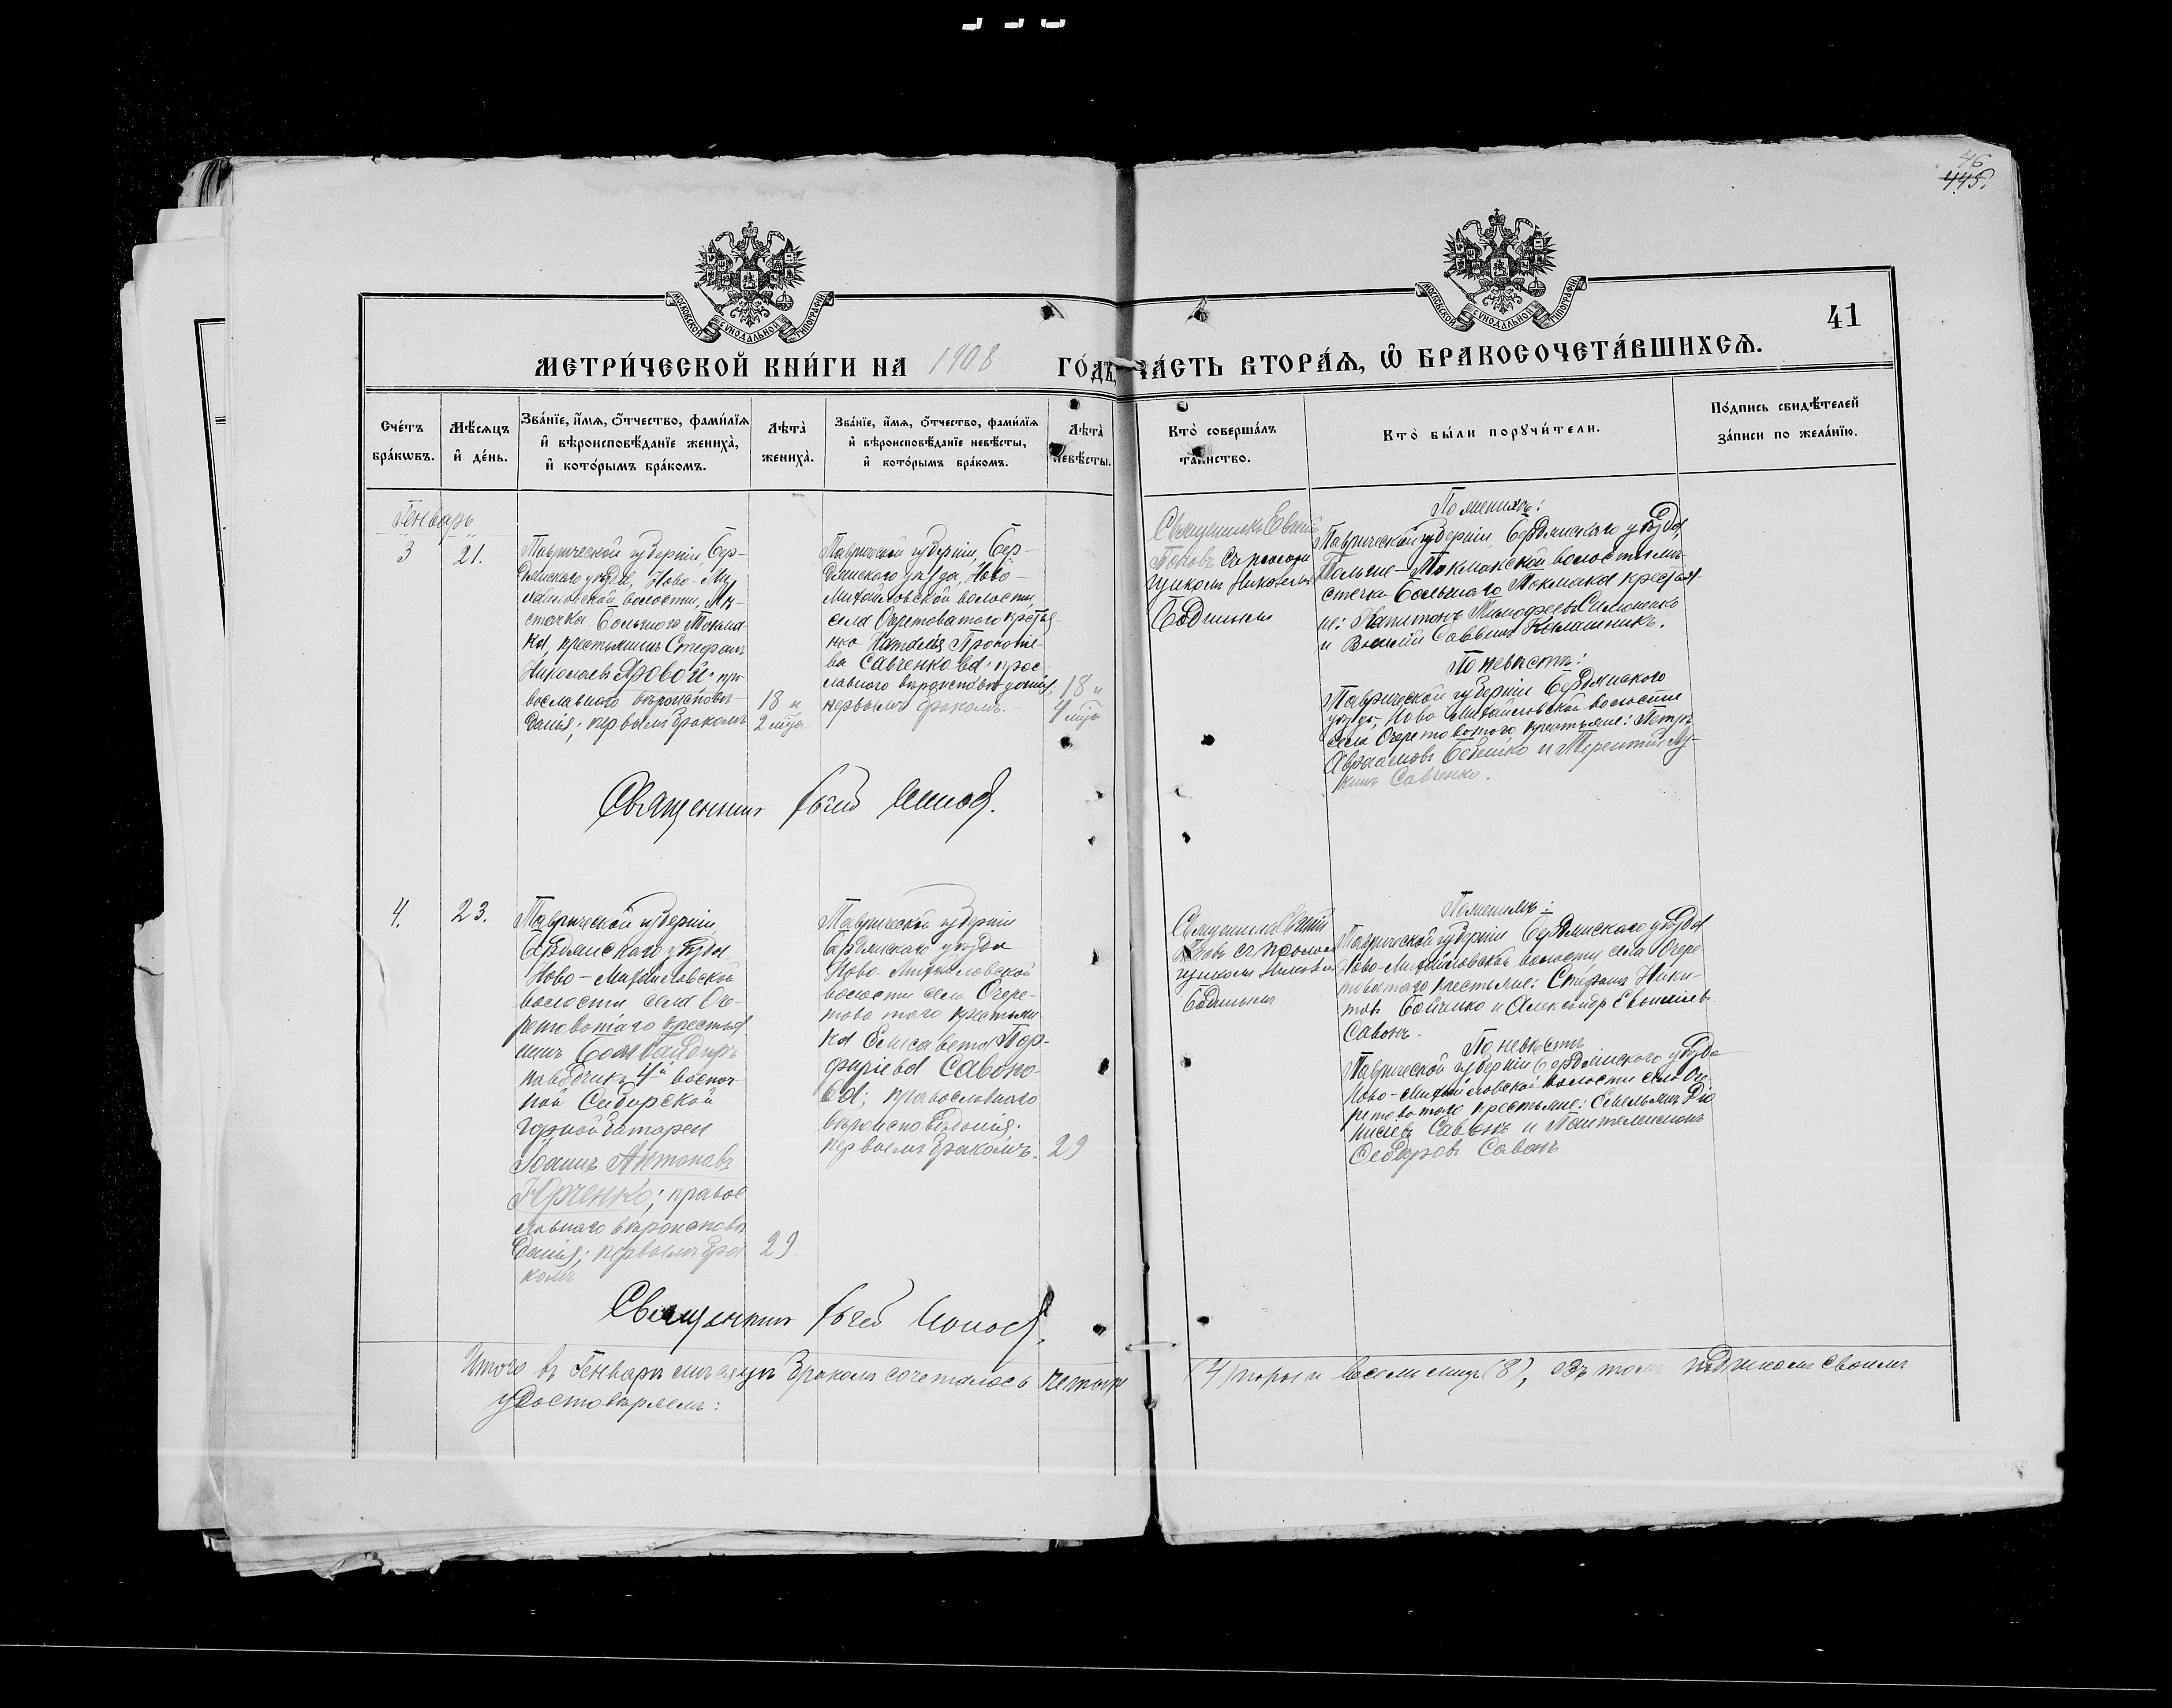 46
445.
41
МОСКОВСКОЙ СѴНОДАЛЬНОЙ ТИПОГРАФІИ
МОСКОВСКОЙ СѴНОДАЛЬНОЙ ТИПОГРАФІИ
МЕТРИ́ЧЕСКОЙ КНИ́ГИ НА 1908 ГО́ДЪ, ЧА́СТЬ ВТОРА́Ѧ, Ѽ БРАКОСОЧЕТА́ВШИХСѦ.
Сче́тъ
бра́кѡвъ.
Мѣ́сѧцъ
и҆ де́нь.
Зва́нїе, и҆́мѧ, ѻ҆́тчество, фами́лїѧ
и҆ вѣроисповѣ́данїе жениха̀,
и҆ кото́рымъ бра́комъ.
Лѣта̀
жениха̀.
Зва́нїе, и҆́мѧ, ѻ҆́тчество, фами́лїѧ
и҆ вѣроисповѣ́данїе невѣ́сты,
и҆ кото́рымъ бра́комъ.
Лѣта̀
невѣ́сты.
Кто̀ соверша́лъ
та́инство.
Кто̀ бы́ли порꙋчи́тели.
По́дпись свидѣ́телей
за́писи по жела́нїю.
Генварь
3
21.
Таврической губерніи, Бер-
дянскаго уѣзда, Ново-Ми
хайловской волости, Мѣ-
стечка Большого Токма
ка, крестьянинъ Стефанъ
Николаевъ Яровой; пра
вославнаго вѣроисповѣ
данія; первымъ бракомъ
18 и
2 мѣся
Таврической губерніи, Бер-
дянскаго уѣзда, Ново-
Михайловской волости,
села Очеретоватого крестья
нка Наталія Прокопіе-
ва Савченкова; право-
славнаго вѣроисповѣданія,
первымъ бракомъ.
18 и
4 мѣся
Священникъ Евгеній
Поповъ съ псалом
щикомъ Николаемъ
По женихѣ:
Таврической губерніи Бердянскаго уѣзда,
Больше-Токмакской волости мѣ-
стечка Большаго Токмака крестьян-
не: Капитонъ Тимофеевъ Симоненко
и Василій Саввинъ Калашникъ.
По невѣстѣ:
Таврической губерніи Бердянскаго
уѣзда, Ново Михайловской волости
села Очеретоватого крестьяне: Петръ
Авраамовъ Бебешко и Терентій Лу-
кинъ Савченко.
Священникъ Евгеній Поповъ.
4.
23.
Таврической губерніи,
Бердянскаго уѣзда
Ново-Михайловской
волости села Оче-
ретоватаго крестья
нинъ Бомбардиръ
наводчикъ 4й восточ
ной Сибирской
горной батареи
Іоаннъ Антоновъ
Юрченко; правос
лавнаго вѣроисповѣ
данія; первымъ бра
комъ
29
Таврической губерніи
Бердянскаго уѣзда
Ново-Михайловской
волости села Очере-
товатого крестьян
ка Елисавета Пор-
фиріева Савоно-
ва; православнаго
вѣроисповѣданія.
первымъ бракомъ.
29
Священникъ Евгеній
Поповъ съ псалом
щикомъ Николаемъ
По женихѣ:
Таврической губерніи Бердянскаго уѣзда
Ново-Михайловской волости села Очере
товатаго крестьяне: Стефанъ Ники-
товъ Бойченко и Александръ Евфиміевъ
Савонъ.
По невѣстѣ
Таврической губерніи Бердянскаго уѣзда
Ново-Михайловской волости села Оче
ретоватого крестьяне: Емельянъ Діо
нисіевъ Савонъ и Пантелеимонъ
Ѳеодоровъ Савонъ
Священникъ Евгеній Поповъ.
Итого въ Генварѣ мѣсяцѣ бракомъ сочеталось четыре (4) пары и восемь лицъ (8), въ томъ подписомъ своимъ
удостовѣряемъ: